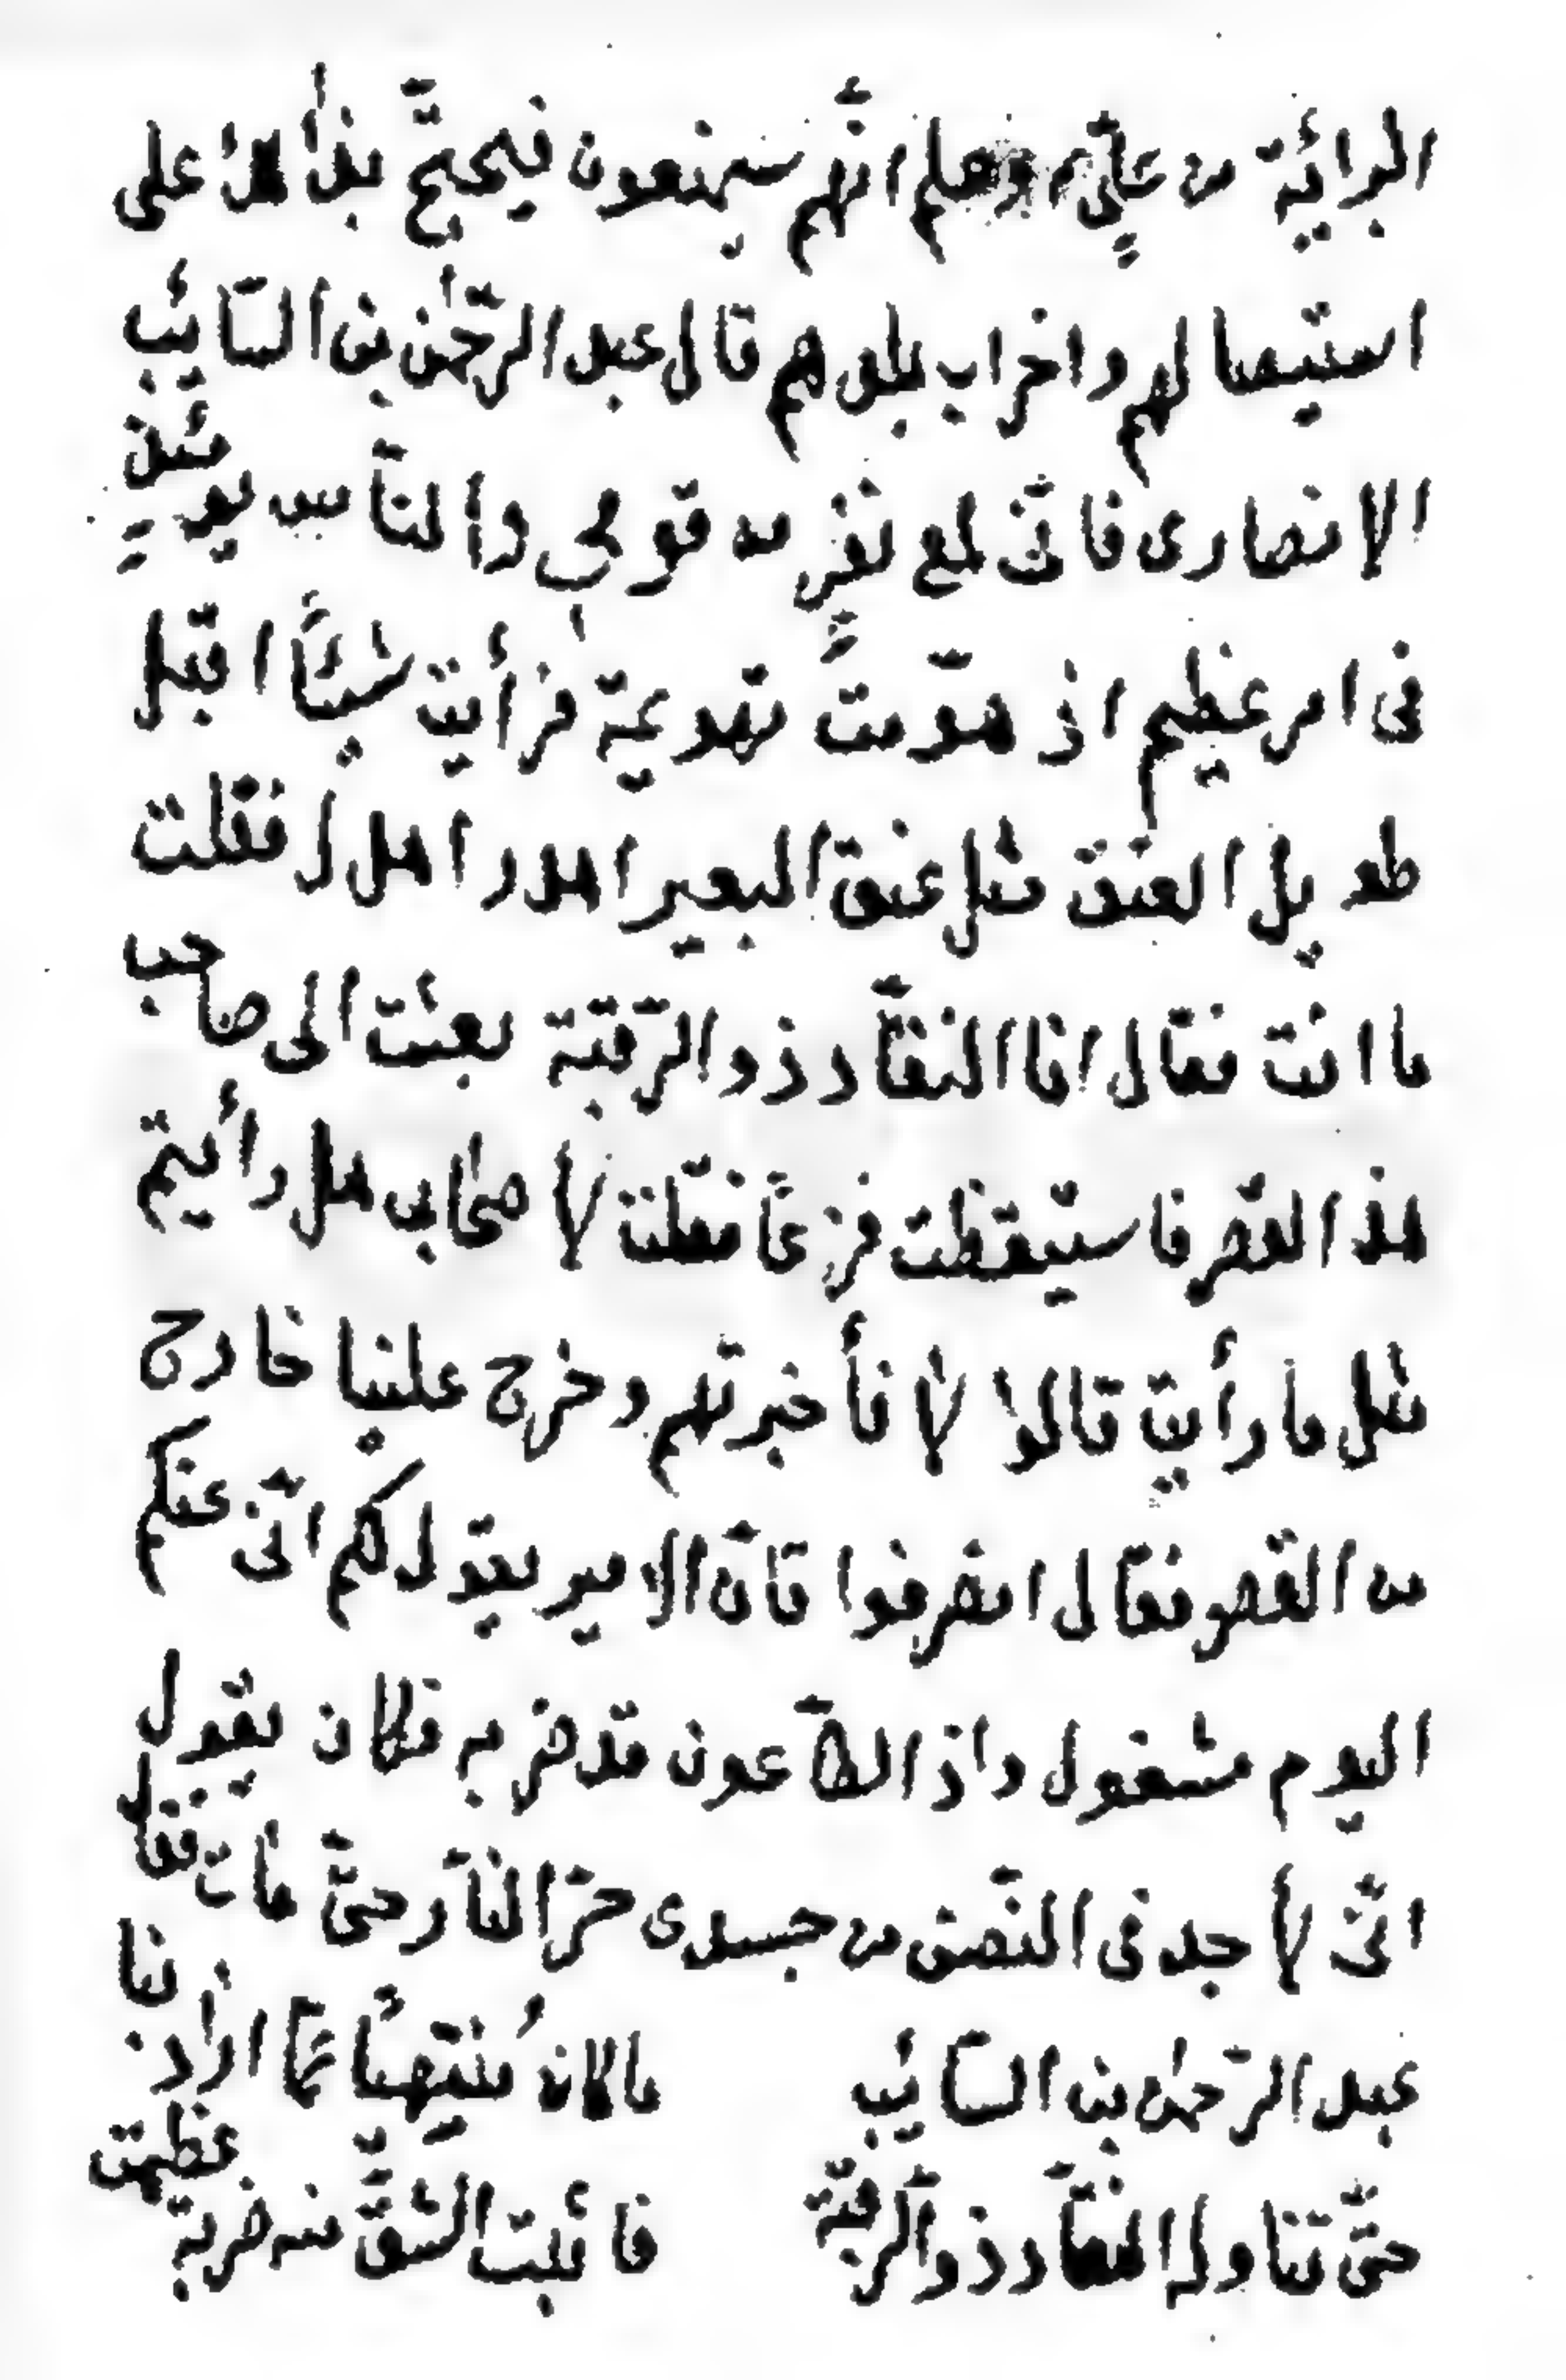 البرائية من عليّ ء وعلم انّهم سيمنعون فيحتجّ بذلك على
استيصالهم واخراب بلدهم قال عبد الرّحمٰن بن السّائب
الانصاري فانّى لمع نفرٍ من قومى والنّاس يومئذٍ
فى امر عظيم اذ هوّمتُ تهويمة فرأيت شيئًا اقبل
طويل العنق مثل عنق البعير اهدر اهدل فقلت
ما انت فقال انا النقّاد ذو الرّقبة بعثت الى صاحب
هذا القصر فاستيقظت فزعًا فقلت لاصحابى هل رأيتم
مثل ما رأيت قالوا لا فأخبرتهم وخرج علينا خارج
من القصر فقال انصرفوا فانّ الامير يقول لكم انّى عنكم
اليوم مشغول واذ الطّاعون قد ضربه فكان يقول
انّى لاجد فى النّصف من جسدى حرّ النّار حتّى مات فقال
عبد الرّحمٰن بن السّائب ما كان مُنتهيًا عمّا اراد بنا
حتّى تناوله النقّاد ذو الرّقبة فاثبت الشّقّ منه ضربة عظمت